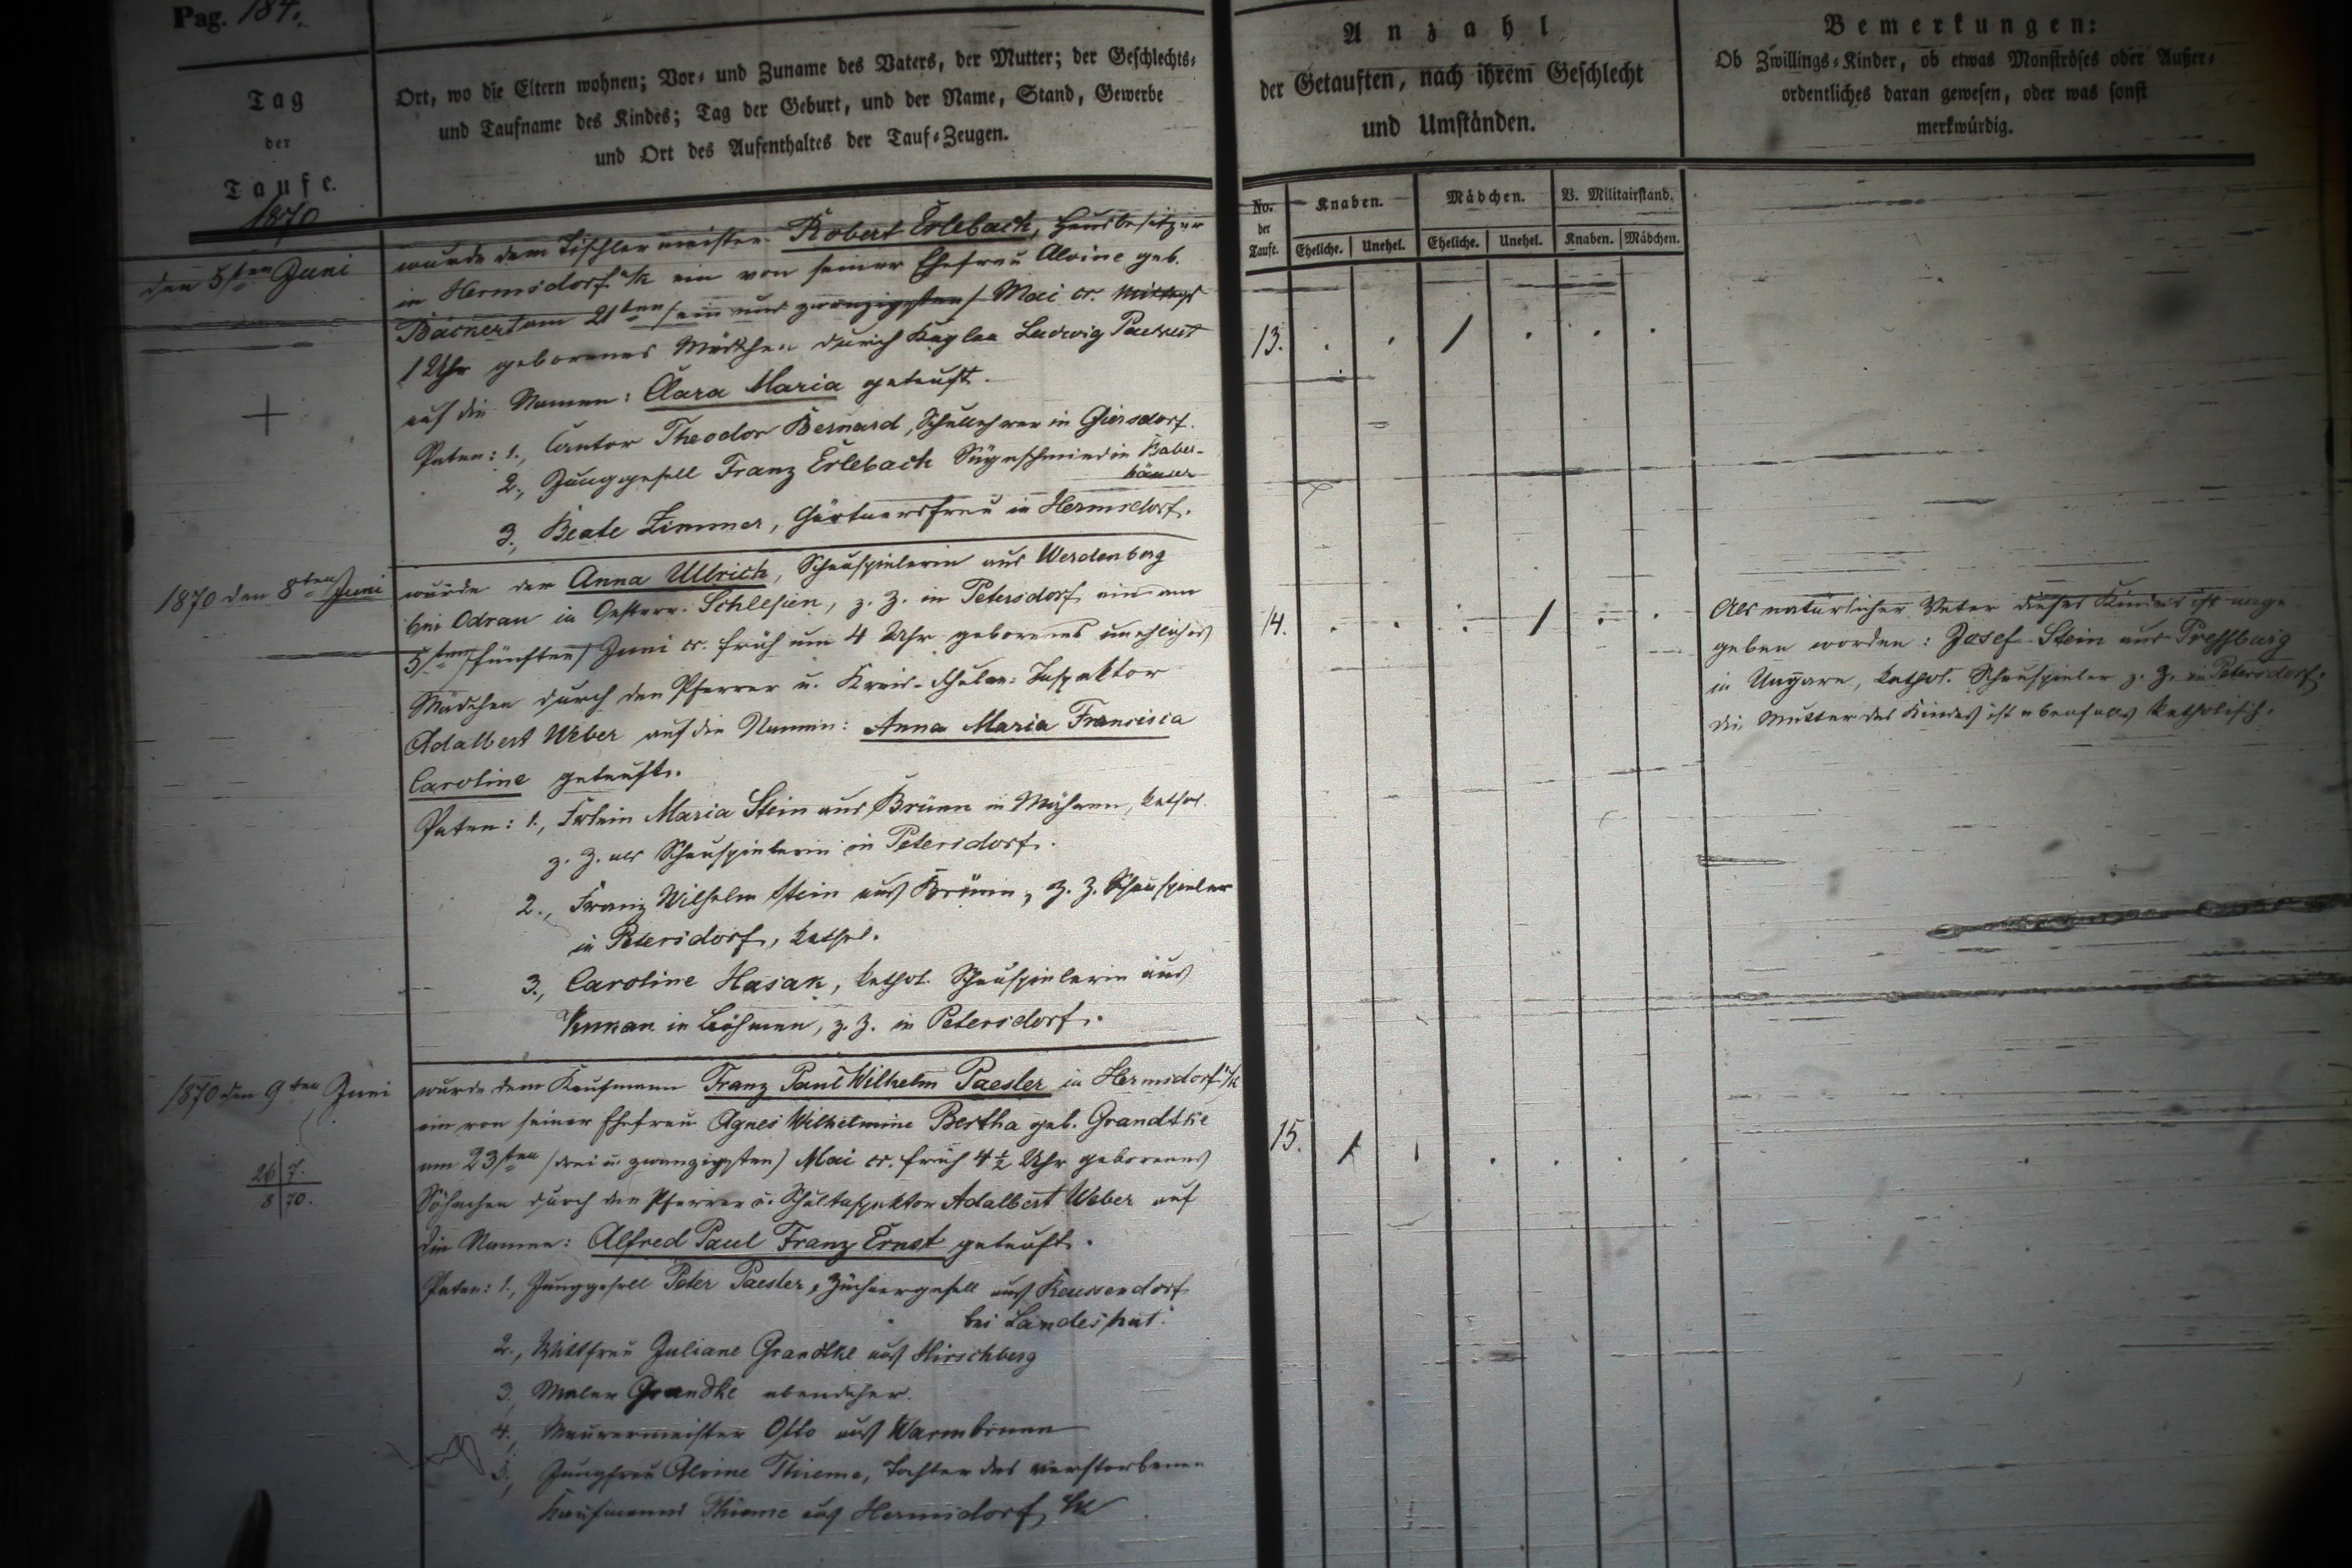 Pag. 184.
Tag
der
Taufe.
1870
Ort, wo die Eltern wohnen; Vor- und Zuname des Vaters, der Mutter; der Geschlechts-
und Taufname des Kindes; Tag der Geburt, und der Name, Stand, Gewerbe
und Ort des Aufenthaltes der Tauf-Zeugen.
Anzahl
der Getauften, nach ihrem Geschlecht
und Umständen.
Bemerkungen:
Ob Zwillings-Kinder, ob etwas Monströses oder Außer-
ordentliches daran gewesen, oder was sonst
merkwürdig.
No. der Taufe.
Knaben. Mädchen. V. Militairstand.
Eheliche. Unehel. Eheliche. Unehel. Knaben. Mädchen.
den 5ten Juni
wurde dem Tischlermeister Robert Erlebach, Hausbesitzer
in Hermsdorf u/k ein von seiner Ehefrau Alvine geb.
Bächert am 21ten (ein und zwanzigsten) Mai cr. Mittags
1 Uhr geborenes Mädchen durch Kaplan Ludwig
auf die Namen: Clara Maria getauft.
Paten: 1., Cantor Theodor Bernard, Schullehrer in Giersdorf.
2., Junggesell Franz Erlebach Sägeschmied in Baber-
häuser
3., Beate Zimmer, Gärtnersfrau in Hermsdorf.
13. . . / . . .
1870 den 8ten Juni
wurde der Anna Ullrich, Schauspielerin aus Werdenberg
bei Odrau in Oesterr. Schlesien, z. Z. in Petersdorf ein am
5ten (fünften) Juni cr. früh um 4 Uhr geborenes unehliches
Mädchen durch den Pfarrer u. Kreis-Schulen-Inspektor
Adalbert Weber auf die Namen: Anna Maria Francisca
Caroline getauft.
Paten: 1., Frlein Maria Stein aus Brünn in Mähren, kathol.
z. Z. als Schauspielerin in Petersdorf.
2., Franz Wilhelm Stein aus Brünn, z. Z. Schauspieler
in Petersdorf, kathol.
3., Caroline Hasak, kathol. Schauspielerin aus
in Böhmen, z. Z. in Petersdorf.
14. . . . / . .
Als natürlicher Vater dieses Kindes ist ange-
geben worden: Josef Stein aus Pressburg
in Ungarn, kathol. Schauspieler z. Z. in Petersdorf.
Die Mutter des Kindes ist ebenfalls katholisch.
1870 den 9ten Juni
26 7.
8 70.
wurde dem Kaufmann Franz Paul Wilhelm Paesler in Hermsdorf u/k
ein von seiner Ehefrau Agnes Wilhelmine Bertha geb. Grandtke
am 23ten (drei u. zwanzigsten) Mai cr. früh 4½ Uhr geborenes
Söhnchen durch den Pfarrer u. Schulinspektor Adalbert Weber auf
die Namen: Alfred Paul Franz Ernst getauft.
Paten: 1., Junggesell Peter Paesler, Züchnergesell aus Reussendorf
bei Landeshut.
2., Wittfrau Juliane Grandtke aus Hirschberg
3., Maler Grandke ebendaher.
4., Maurermeister Otto aus Warmbrunn
5., Jungfrau Alvine Thieme, Tochter des verstorbenen
Kaufmanns Thieme aus Hermsdorf u/k
15. / . . . . .